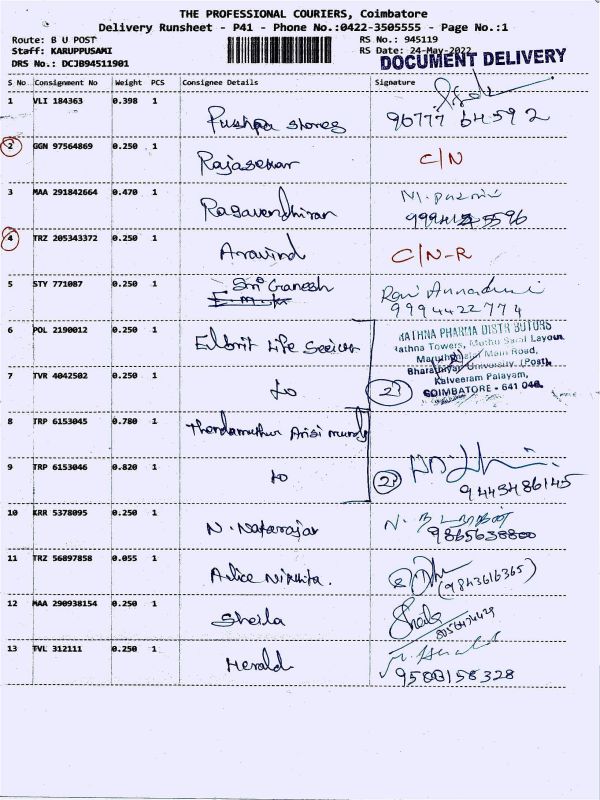 THE PROFESSIONAL COURIERS, Coimbatore
Delivery Runsheet - P41 - Phone No.:0422-3505555 - Page No.:1
Route: B U POST
RS No.: 945119
Staff: KARUPPUSAMI
RS Date: 24-May-2022
DRS No.: DCJB94511901
DOCUMENT DELIVERY
S No Consignment No Weight PCS Consignee Details Signature
1 VLI 184363 0.398 1 Pushpa stores
96777 64592
2 GGN 97564869 0.250 1 Rajasekar C/N
3 MAA 291842664 0.470 1 Ragavendhiran
4 TRZ 205343372 0.250 1 Aravind C/N-R
5 STY 771087 0.250 1 Sri Ganesh
9994422774
6 POL 2190012 0.250 1 Life
RATHNA PHARMA DISTRIBUTORS
Rathna Towers, Layout,
Main Road,
Bharathiyar University (Post),
Kalveeram Palayam,
COIMBATORE - 641 046.
7 TVR 4042502 0.250 1 to 2
8 TRP 6153045 0.780 1 Arisi
9 TRP 6153046 0.820 1 to 2
9443486145
10 KRR 5378095 0.250 1 N. Natarajan
9865638800
11 TRZ 56897858 0.055 1
(9843616365)
12 MAA 290938154 0.250 1 Sheila Sheila
13 TVL 312111 0.250 1 Herald